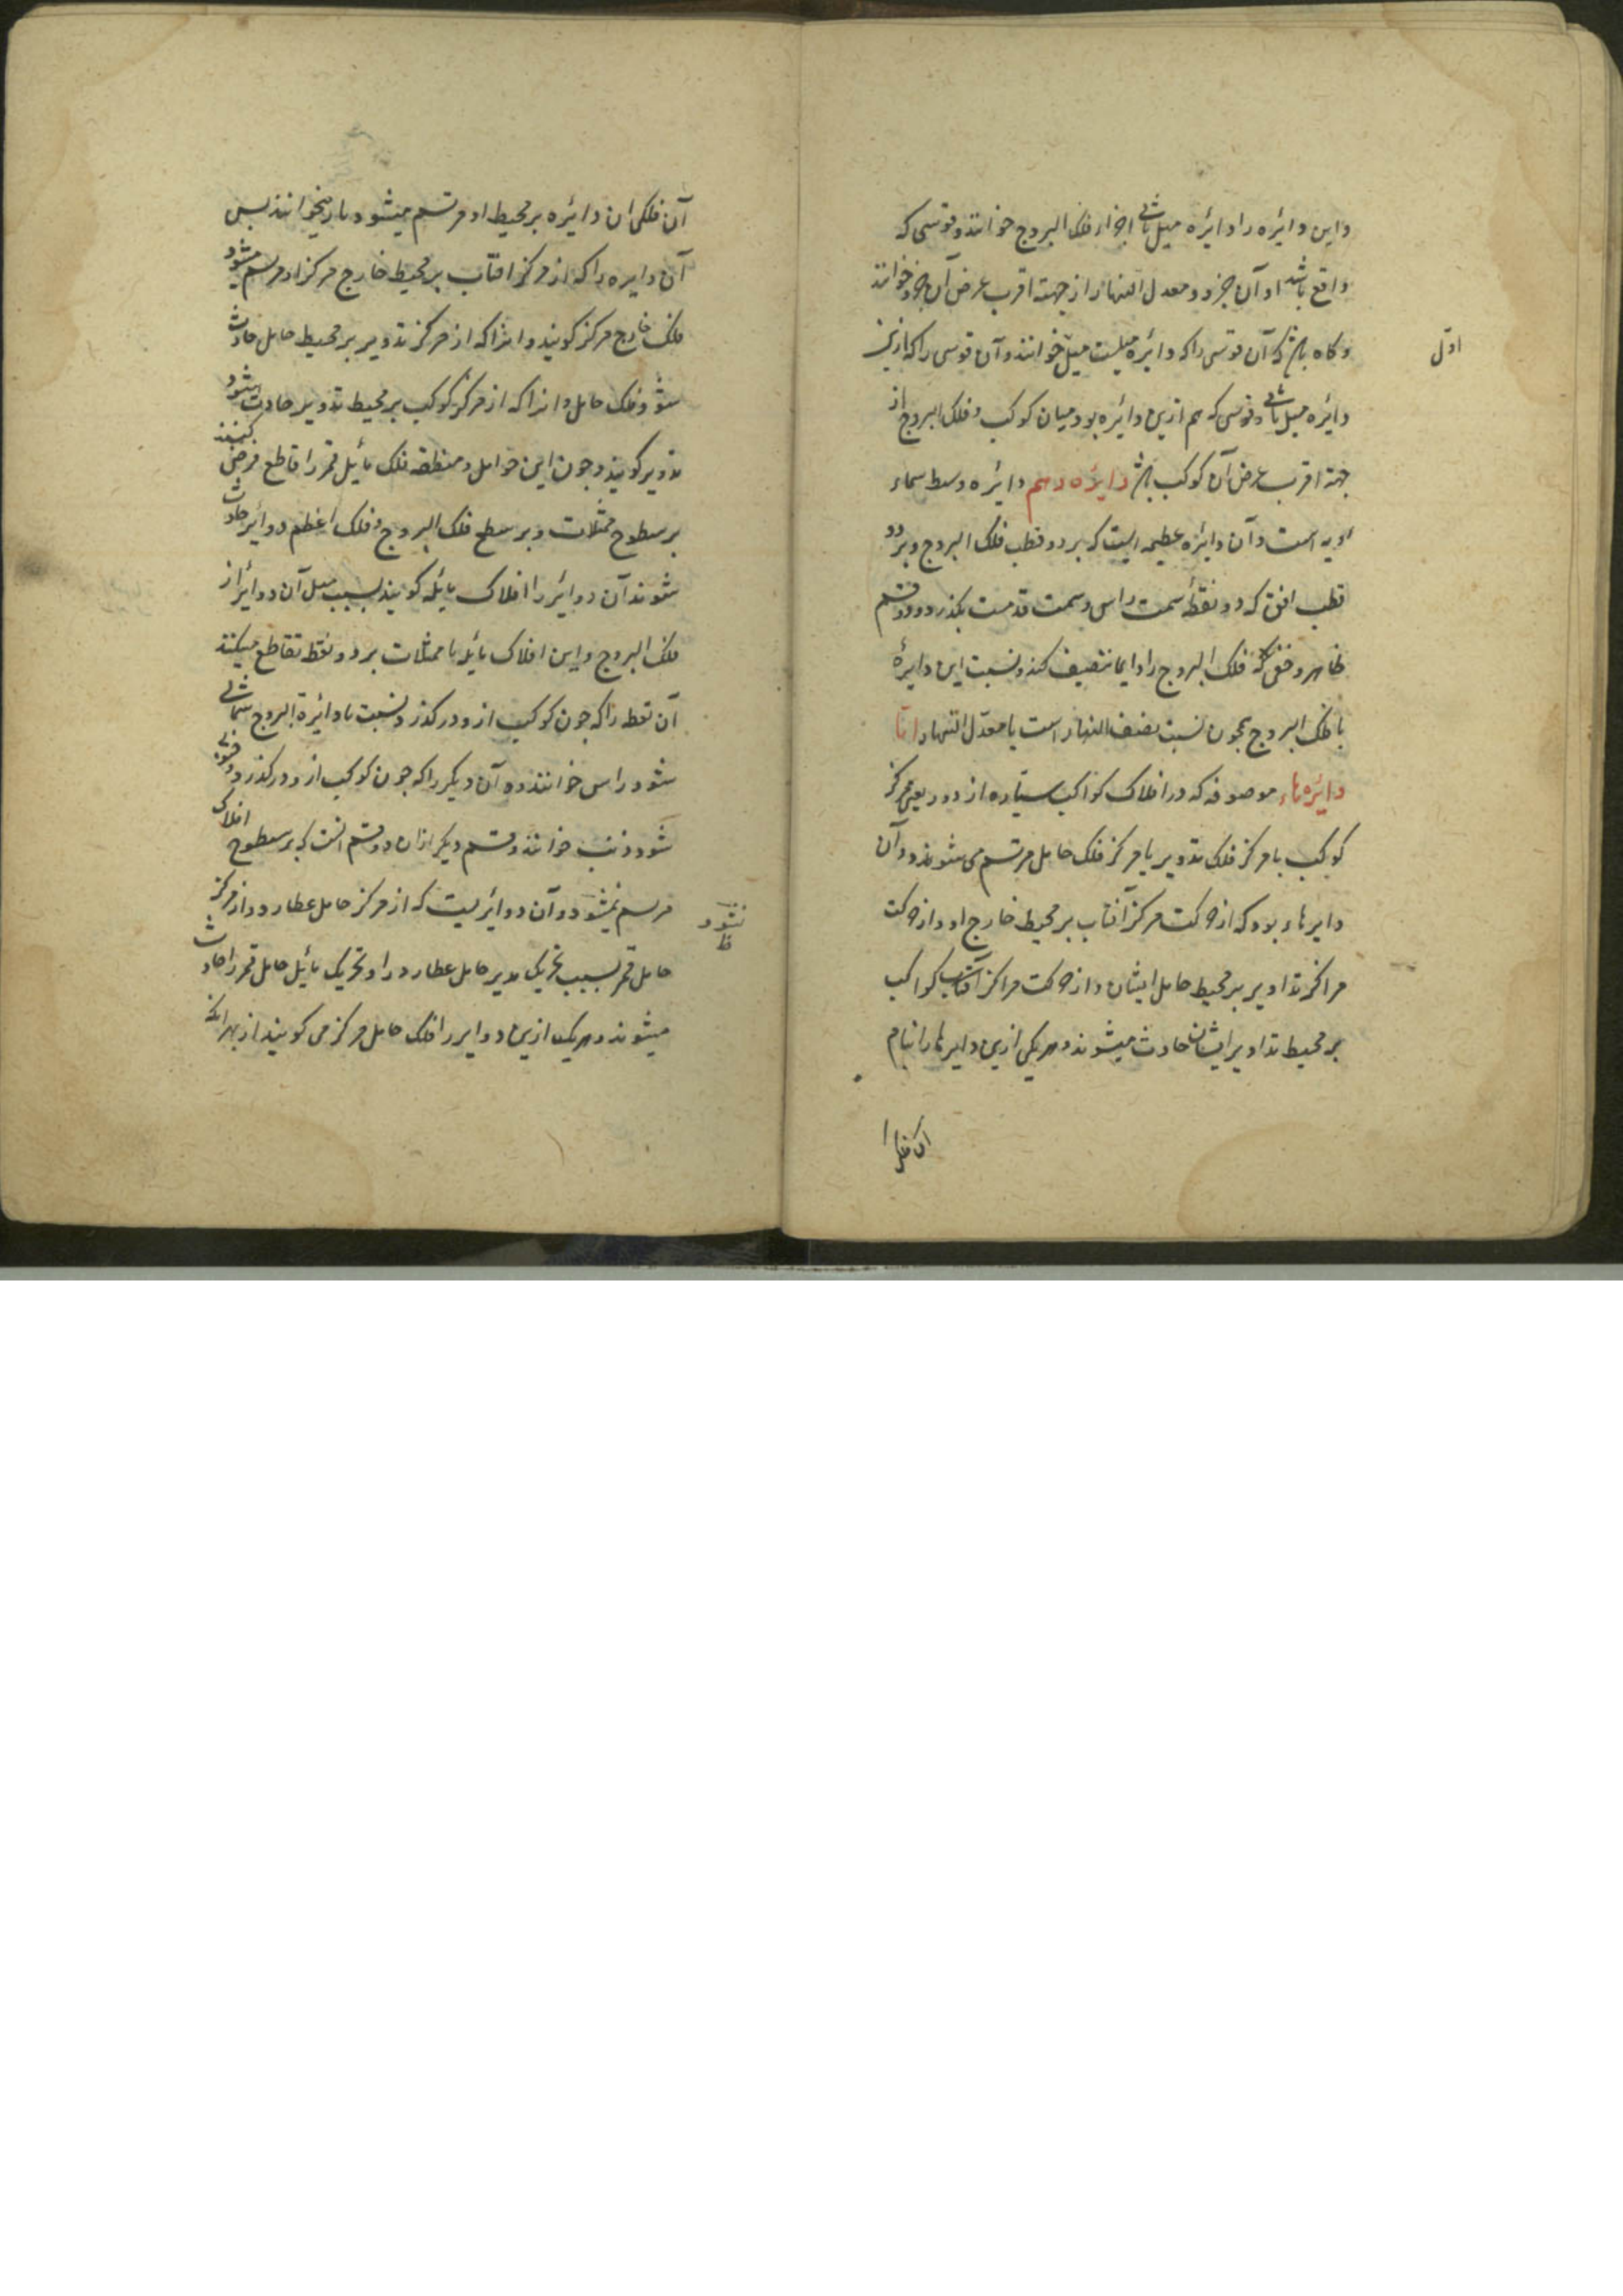 واین دائره را دائره میل ثانی اجزاء فلک البروج خوانند و قوسی که
واقع باشد او آن جزو و معدل النهار از جهة اقرب عرض آن جزو خوانند
و کاه باشد که آن قوسی را که دائره میلست میل خوانند و آن قوسی را که ازین
اول
دائره میل ثانی و قوسی که هم ازین دائره بود میان کوکب و فلک البروج از
جهة اقرب عرض آن کوکب باشد دائره دهم دائره وسط سماء
رویه است و آن دائره عظیمه ایست که بر دو قطب فلک البروج و بر دو
قطب افق که دو نقطه سمت راس و سمت قدمست بکذرد و دو قسم
ظاهر و خفی که فلک البروج را دایما تنصیف کند و نسبت این دایرهٔ
با فلک البروج همچون نسبت نصف النهار است با معدل النهار و اما
دایره هاء موصوفه که در افلاک کواکب سیاره از دور یعنی مرکز
کوکب با مرکز فلک تدویر یا مرکز فلک حامل مرتسم می شوند و آن
دایرهاء بود که از حرکت مرکز آفتاب بر محیط خارج او و از حرکت
مراکز تداویر بر محیط حامل ایشان و از حرکت مراکز آفتاب کواکب
بر محیط تداویر ایشان حادث میشوند و هر یکی ازین دایرها را بنام
آن فلک
آن فلکی ان دائره بر محیط او مرتسم میشود باز میخوانند بس
آن دایره را که از مرکز افتاب بر محیط خارج مرکز او مرتسم میشود
فلک خارج مرکز کویند و انرا که از مرکز تدویر بر محیط حامل حادث
شود فلک حامل و انرا که از مرکز کوکب بر محیط تدویر حادث میشود
تدویر کویند و جون این حوامل و منطقه فلک مائل قمر را قاطع فرض کنند
بر سطوح ممثلات و بر سطح فلک البروج و فلک اعظم دوائر حادث
شوند آن دوائر را افلاک مائله کویند بسبب میل آن دوائر از
فلک البروج و این افلاک مائله با ممثلات بر دو نقطه تقاطع میکنند
آن نقطه را که جون کوکب از و درکذرد نسبت با دائرة البروج شمالی
شود راس خوانند و آن دیکر را که جون کوکب از و درکذرد جنوبی
شود ذنب خوانند و قسم دیکر ازان دو قسم انست که بر سطوح افلاک
مرسم نمیشود و آن دوائریست که از مرکز حامل عطارد و از مرکز
نشود
ظ
حامل قمر بسبب تحریک مدیر حامل عطارد را و تحریک مائل حامل قمر را حادث
میشوند و هر یک ازین دوایر را فلک حامل مرکز می کویند از بهر انکه